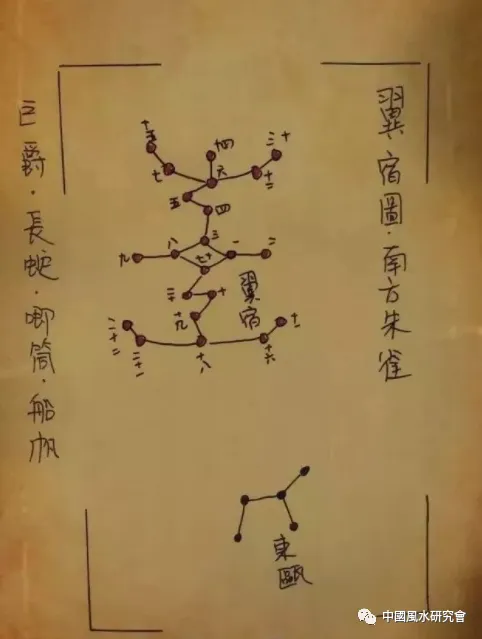 翼宿圖·南方朱雀
十五
十四
七
六
十二
五
四
三
八
一
二
九
七十
二十
十
翼宿
十九
十一
二十二
二十一
十八
十六
東甌
巨爵·長蛇·唧筒·船帆
中國風水研究會